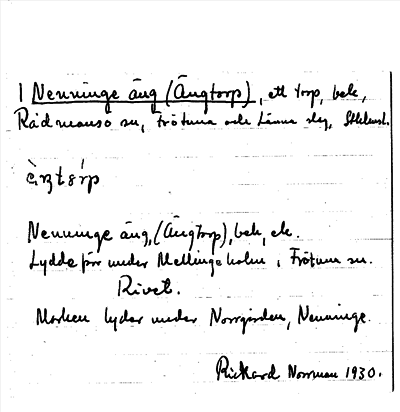 1 Nenninge äng (Ängtorp), ett torp, bek,
Rådmansö sn, Frötuna och Länna slg, Sthlmsl.
Nenninge äng, (Ängtorp), bek, ek.
Lydde förr under Mellingeholm i Frötuna sn.
Rivet.
Marken lyder under Norrgården, Nenninge.
Rickard Norrman 1930.